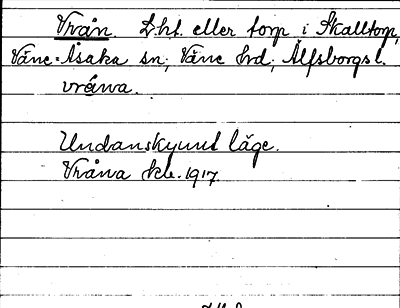 Vrån. Lht. eller torp i Skalltorp,
Väne-Åsaka sn; Väne hd; Älfsborgs l.
vrǻwa.
Undanskymt läge.
Vråna kb. 1917